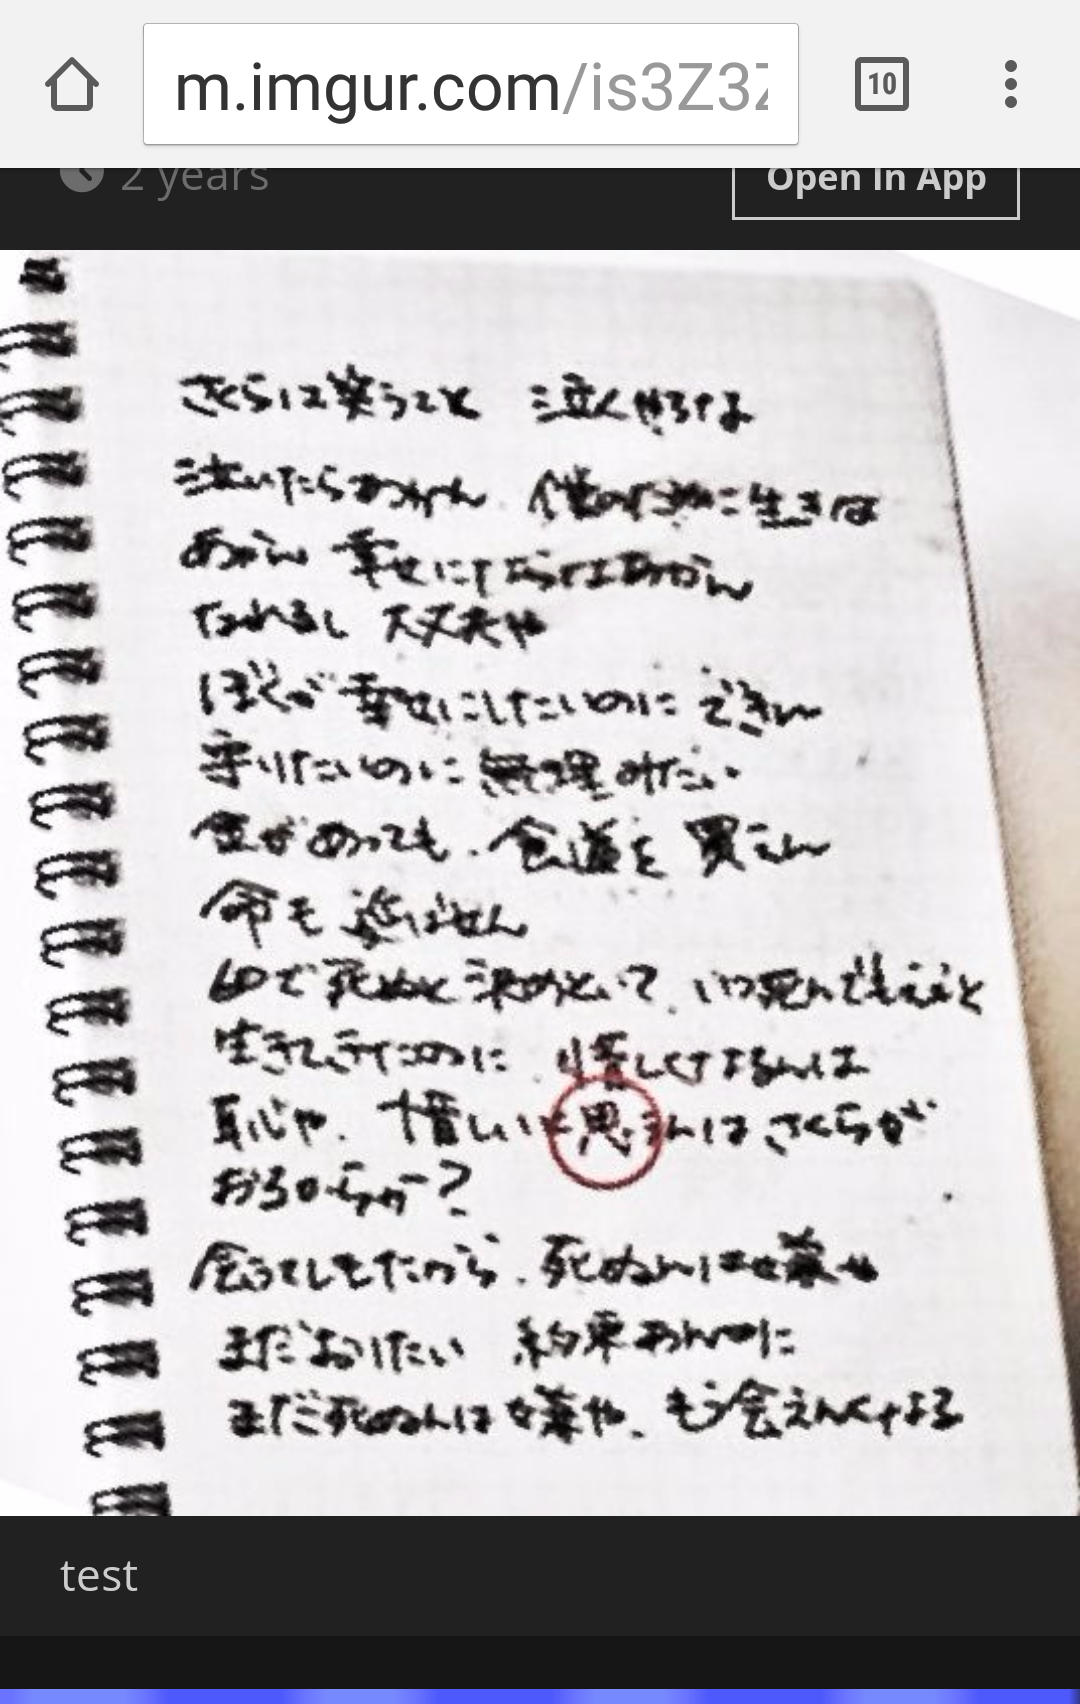 m.imgur.com/is3Z3Z
10
2 years
Open In App
さくらは笑うこと 泣くやろな
泣いたらあかん 僕の に生きな
あかん 幸せにならなあかん
なれるし 大丈夫や
ぼくが幸せにしたいのに できん
守りたいのに無理みたい
金があっても、 を買えん
命も延ばせん
60で死ぬと決めといて、いつ死んでもええと
生きてきたのに、惜しくなるんは
恥や、惜しいと思うんはさくらが
おるからか?
会うてしもたから、死ぬんは嫌や
まだおりたい 約束あんのに
まだ死ぬんは嫌や、もう会えんくなる
test